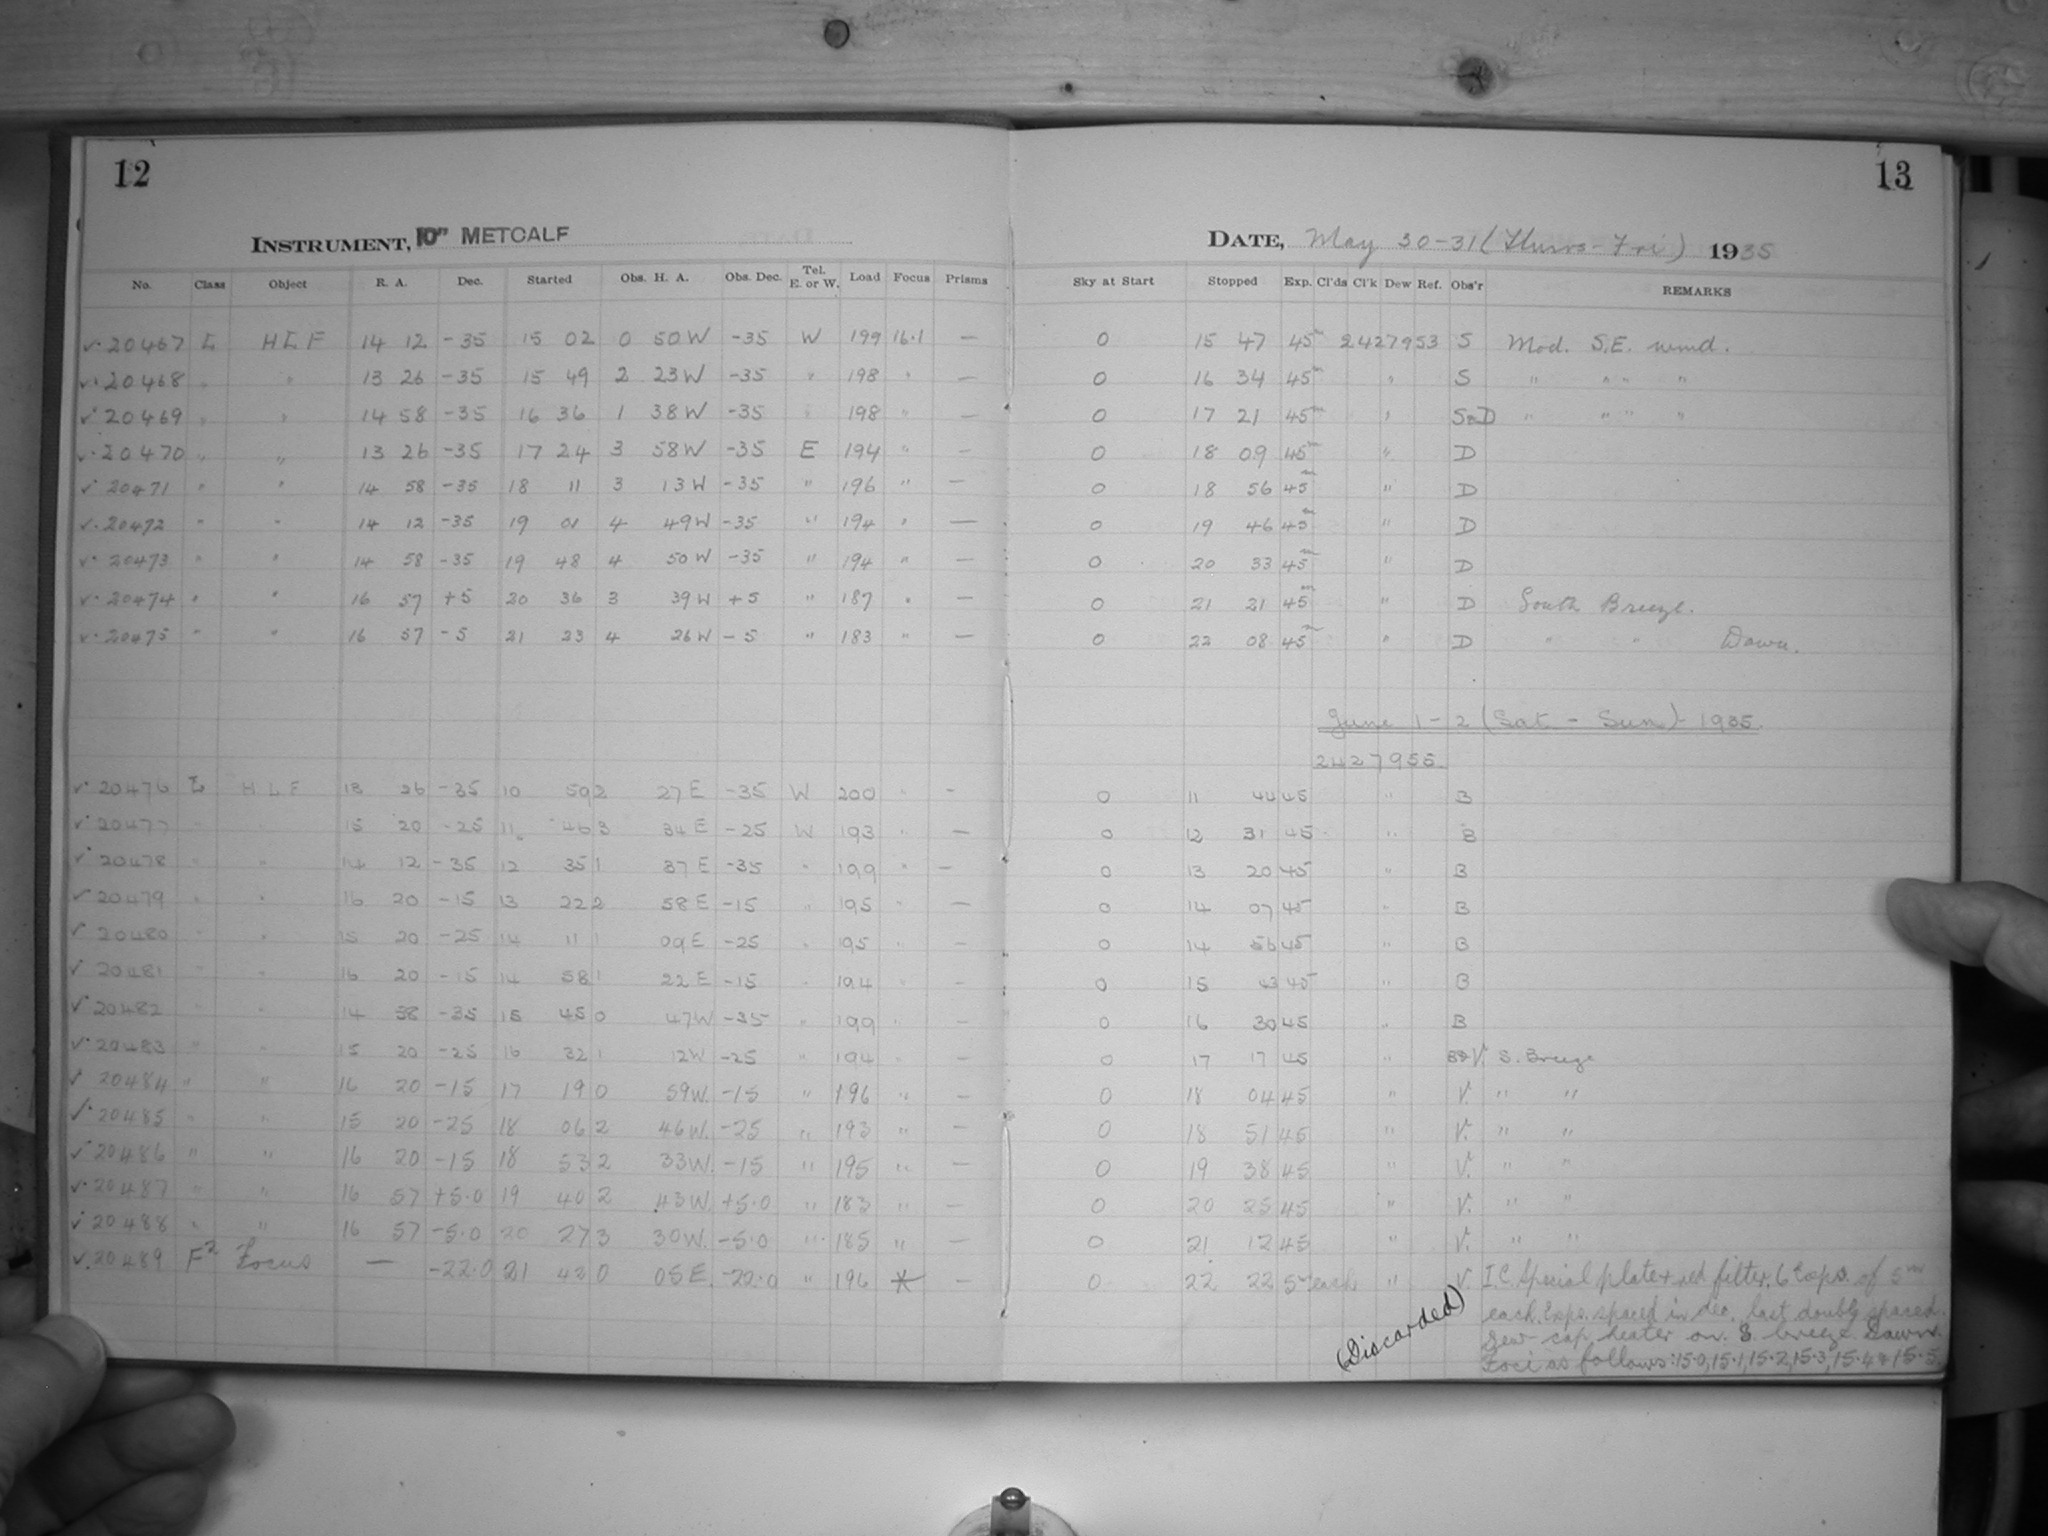 12
INSTRUMENT, 10" METCALF
No. Class Object R. A. Dec. Started Obs. H. A. Obs. Dec. Tel. E. or W. Load Focus Prisms
✓·20467 L H L F 14 12 -35 15 02 0 50W -35 W 199 16·1 —
✓·20468 " " 13 26 -35 15 49 2 23W -35 " 198 " —
✓·20469 " " 14 58 -35 16 36 1 38W -35 " 198 " —
✓·20470 " " 13 26 -35 17 24 3 58W -35 E 194 " —
✓·20471 " " 14 58 -35 18 11 3 13W -35 " 196 " —
✓·20472 " " 14 12 -35 19 01 4 49W -35 " 194 " —
✓·20473 " " 14 58 -35 19 48 4 50W -35 " 194 " —
✓·20474 " " 16 57 +5 20 36 3 39W +5 " 187 " —
✓·20475 " " 16 57 -5 21 23 4 26W -5 " 183 " —
✓·20476 L H L F 13 26 -35 10 59 2 27E -35 W 200 " -
✓·20477 " " 15 20 -25 11 46 3 34E -25 W 193 " —
✓·20478 " " 14 12 -35 12 35 1 37E -35 " 199 " —
✓·20479 " " 16 20 -15 13 22 2 58E -15 " 195 " —
✓·20480 " " 15 20 -25 14 11 1 09E -25 " 195 " —
✓·20481 " " 16 20 -15 14 58 1 22E -15 " 194 " —
✓·20482 " " 14 58 -35 15 45 0 47W -35 " 199 " —
✓·20483 " " 15 20 -25 16 32 1 12W -25 " 194 " —
✓·20484 " " 16 20 -15 17 19 0 59W. -15 " 196 " —
✓·20485 " " 15 20 -25 18 06 2 46W. -25 " 193 " —
✓·20486 " " 16 20 -15 18 53 2 33W. -15 " 195 " —
✓·20487 " " 16 57 +5·0 19 40 2 43W. +5·0 " 183 " —
✓·20488 " " 16 57 -5·0 20 27 3 30W. -5·0 " 185 " —
✓·20489 F² Focus — -22·0 21 42 0 05E. -22·0 " 196 * —
13
DATE, May 30-31 (Thurs-Fri) 1935
Sky at Start Stopped Exp. Cl'ds Cl'k Dew Ref. Obs'r REMARKS
0 15 47 45m 2427953 S Mod. S.E. wind.
0 16 34 45m " S " " " "
0 17 21 45m " S&D " " " "
0 18 09 45m " D
0 18 56 45m " D
0 19 46 45m " D
0 20 33 45m " D
0 21 21 45m " D South Breeze.
0 22 08 45m " D " " Dawn.
June 1-2 (Sat - Sun)- 1935.
2427955
0 11 44 45 " B
0 12 31 45 " B
0 13 20 45 " B
0 14 07 45 " B
0 14 56 45 " B
0 15 43 45 " B
0 16 30 45 " B
0 17 17 45 " B&V. S. Breeze
0 18 04 45 " V. " "
0 18 51 45 " V. " "
0 19 38 45 " V. " "
0 20 25 45 " V. " "
0 21 12 45 " V. " "
0 22 22 5m each " V. I.C. Special plate & red filter. 6 exps. of 5m
each. Exps. spaced in dec. last doubly spaced.
Dew cap heater on. S. breeze. Dawn.
Foci as follows: 15·0, 15·1, 15·2, 15·3, 15·4 & 15·5.
(Discarded)